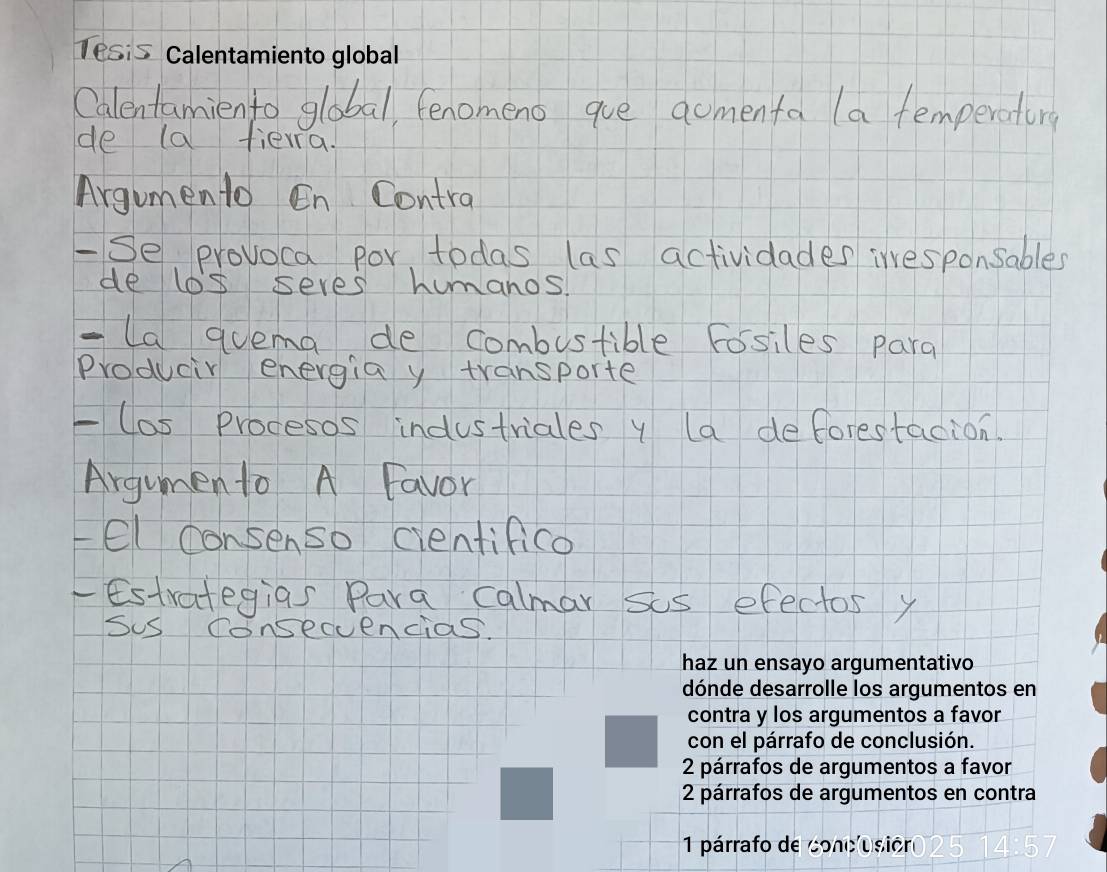 Tesis Calentamiento global
Calentamiento global, fenomeno que aumenta la temperatura
de la tierra.
Argumento En Contra
- Se provoca por todas las actividades irresponsables
de los seres humanos.
- La quema de combustible Fósiles para
Producir energía y transporte
- Los Procesos industriales y la deforestación.
Argumento A Favor
- El consenso cientifico
- Estrategias Para calmar sus efectos y
sus consecuencias.
haz un ensayo argumentativo
dónde desarrolle los argumentos en
contra y los argumentos a favor
con el párrafo de conclusión.
2 párrafos de argumentos a favor
2 párrafos de argumentos en contra
1 párrafo de conclusión
16/10/2025 14:57